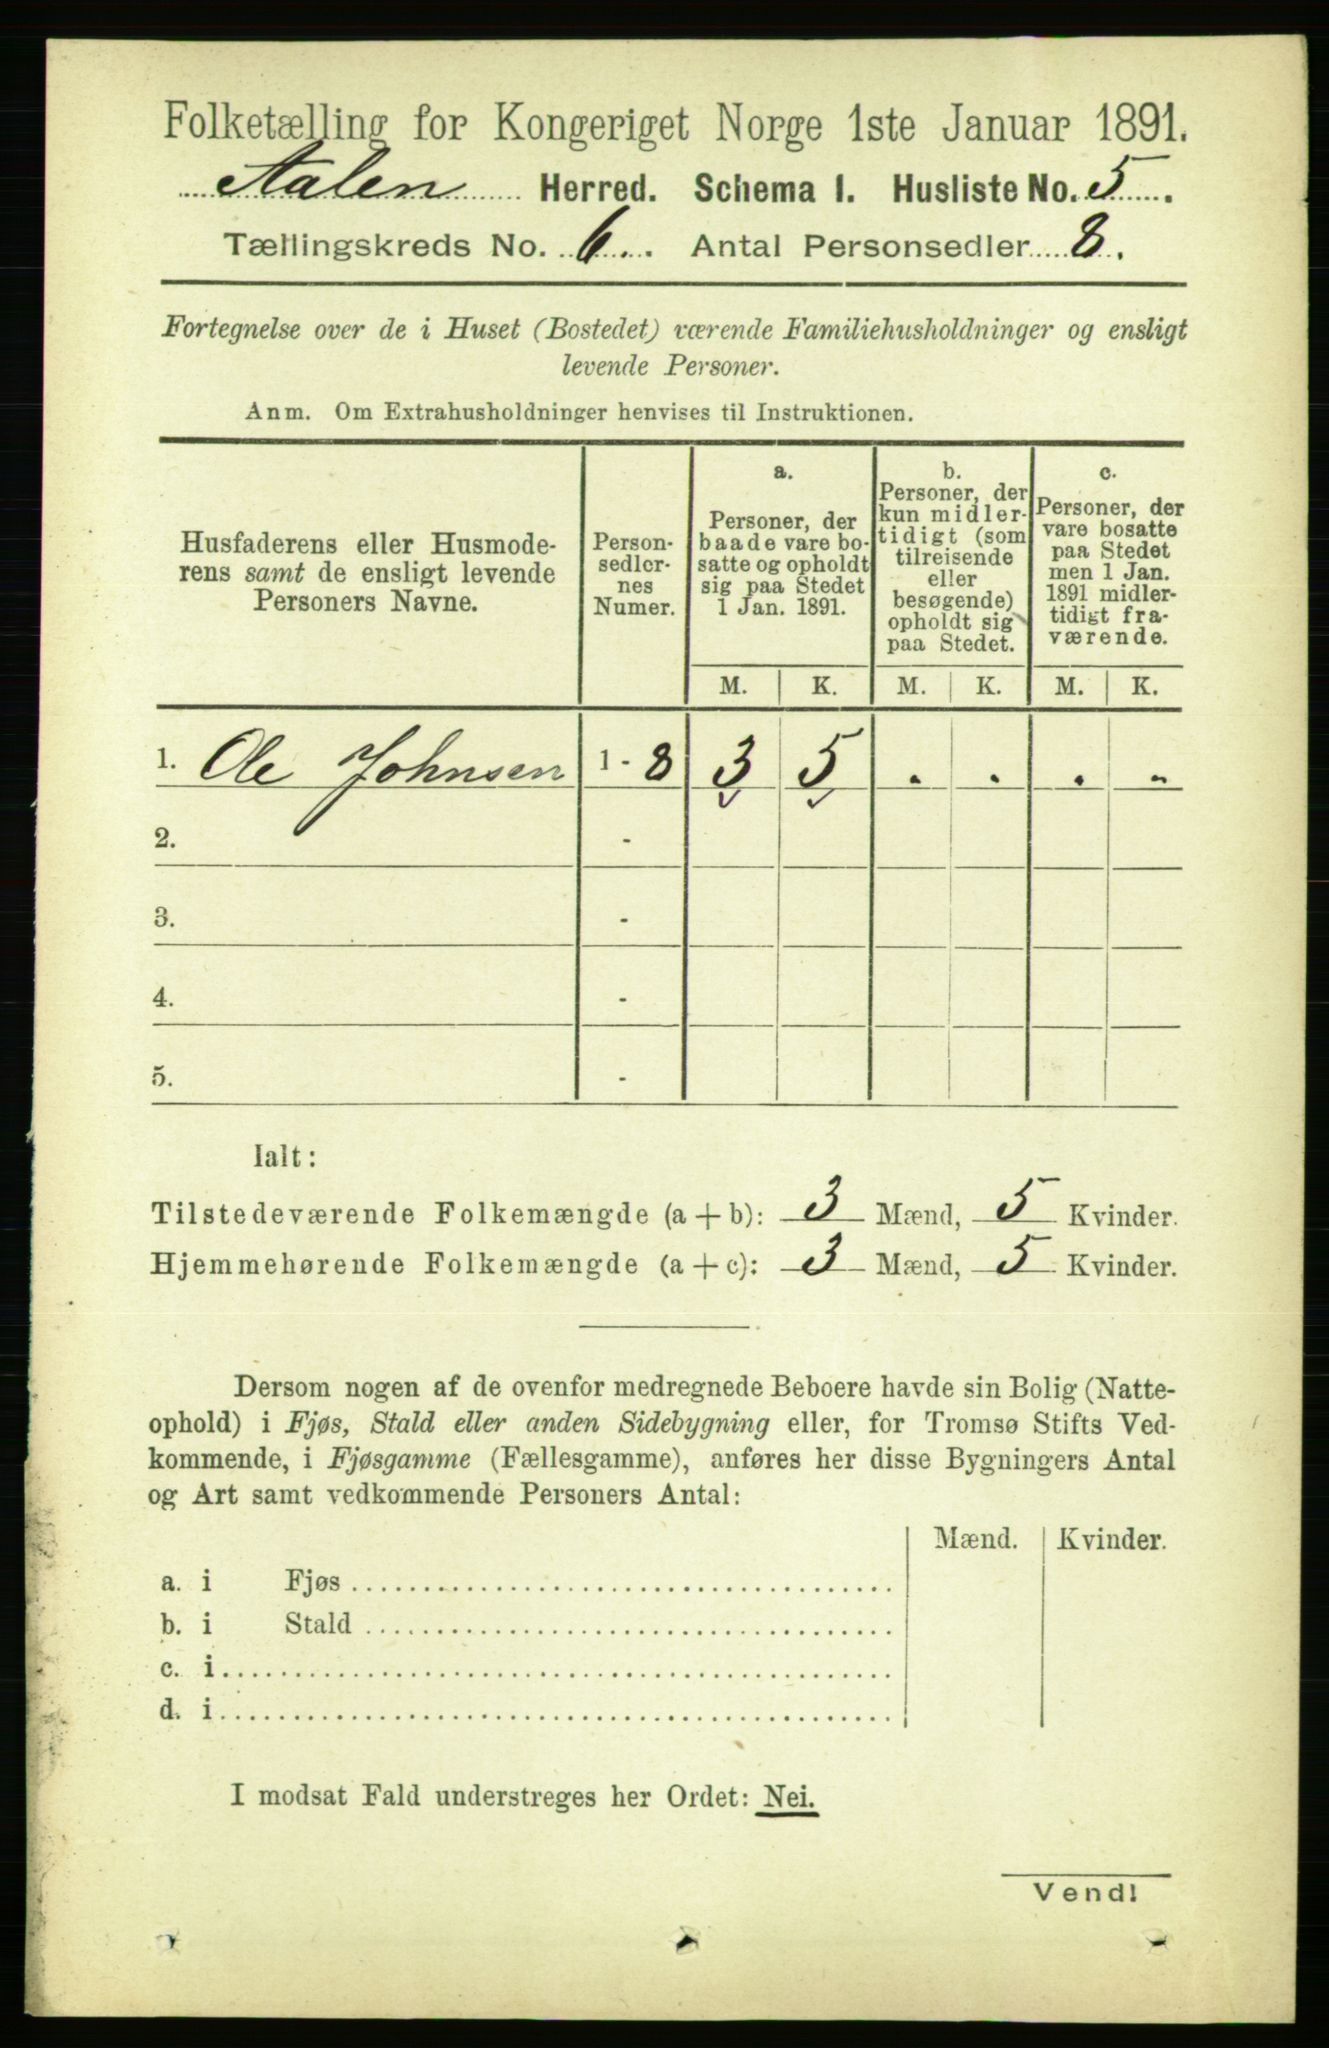 Folketælling for Kongeriget Norge 1ste Januar 1891.
Aalen Herred. Schema 1. Husliste No. 5.
Tællingskreds No. 6. Antal Personsedler 8.
Fortegnelse over de i Huset (Bostedet) værende Familiehusholdninger og ensligt
levende Personer.
Anm. Om Extrahusholdninger henvises til Instruktionen.
Husfaderens eller Husmode-
rens samt de ensligt levende
Personers Navne.
Person-
sedler-
nes
Numer.
a.
Personer, der
baade vare bo-
satte og opholdt
sig paa Stedet
1 Jan. 1891.
b.
Personer, der
kun midler-
tidigt (som
tilreisende
eller
besøgende)
opholdt sig
paa Stedet.
c.
Personer, der
vare bosatte
paa Stedet
men 1 Jan.
1891 midler-
tidigt fra-
værende.
M. K. M. K. M. K.
1. Ole Johnsen 1 - 8 3 5 . . . .
2. -
3. -
4. -
5. -
Ialt:
Tilstedeværende Folkemængde (a + b): 3 Mænd, 5 Kvinder.
Hjemmehørende Folkemængde (a + c): 3 Mænd, 5 Kvinder.
Dersom nogen af de ovenfor medregnede Beboere havde sin Bolig (Natte-
ophold) i Fjøs, Stald eller anden Sidebygning eller, for Tromsø Stifts Ved-
kommende, i Fjøsgamme (Fællesgamme), anføres her disse Bygningers Antal
og Art samt vedkommende Personers Antal:
Mænd. Kvinder.
a. i Fjøs
b. i Stald
c. i
d. i
I modsat Fald understreges her Ordet: Nei.
Vend!